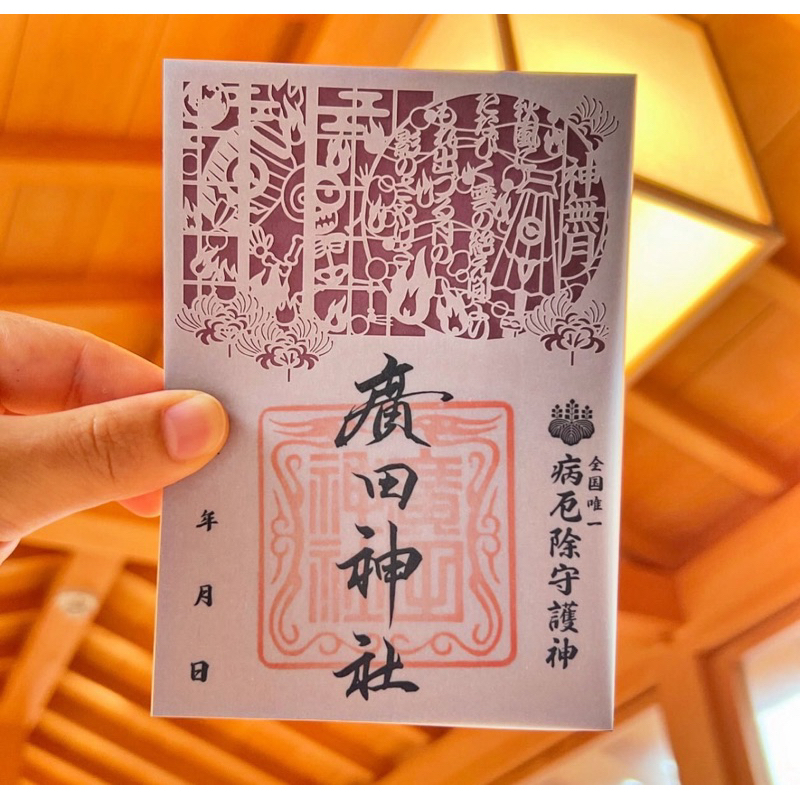 神無月
秋風に
たなびく雲の絶え間より
もれ出づる月の
影のさやけさ
全国唯一
病厄除守護神
廣田神社
廣田
神社
年月日